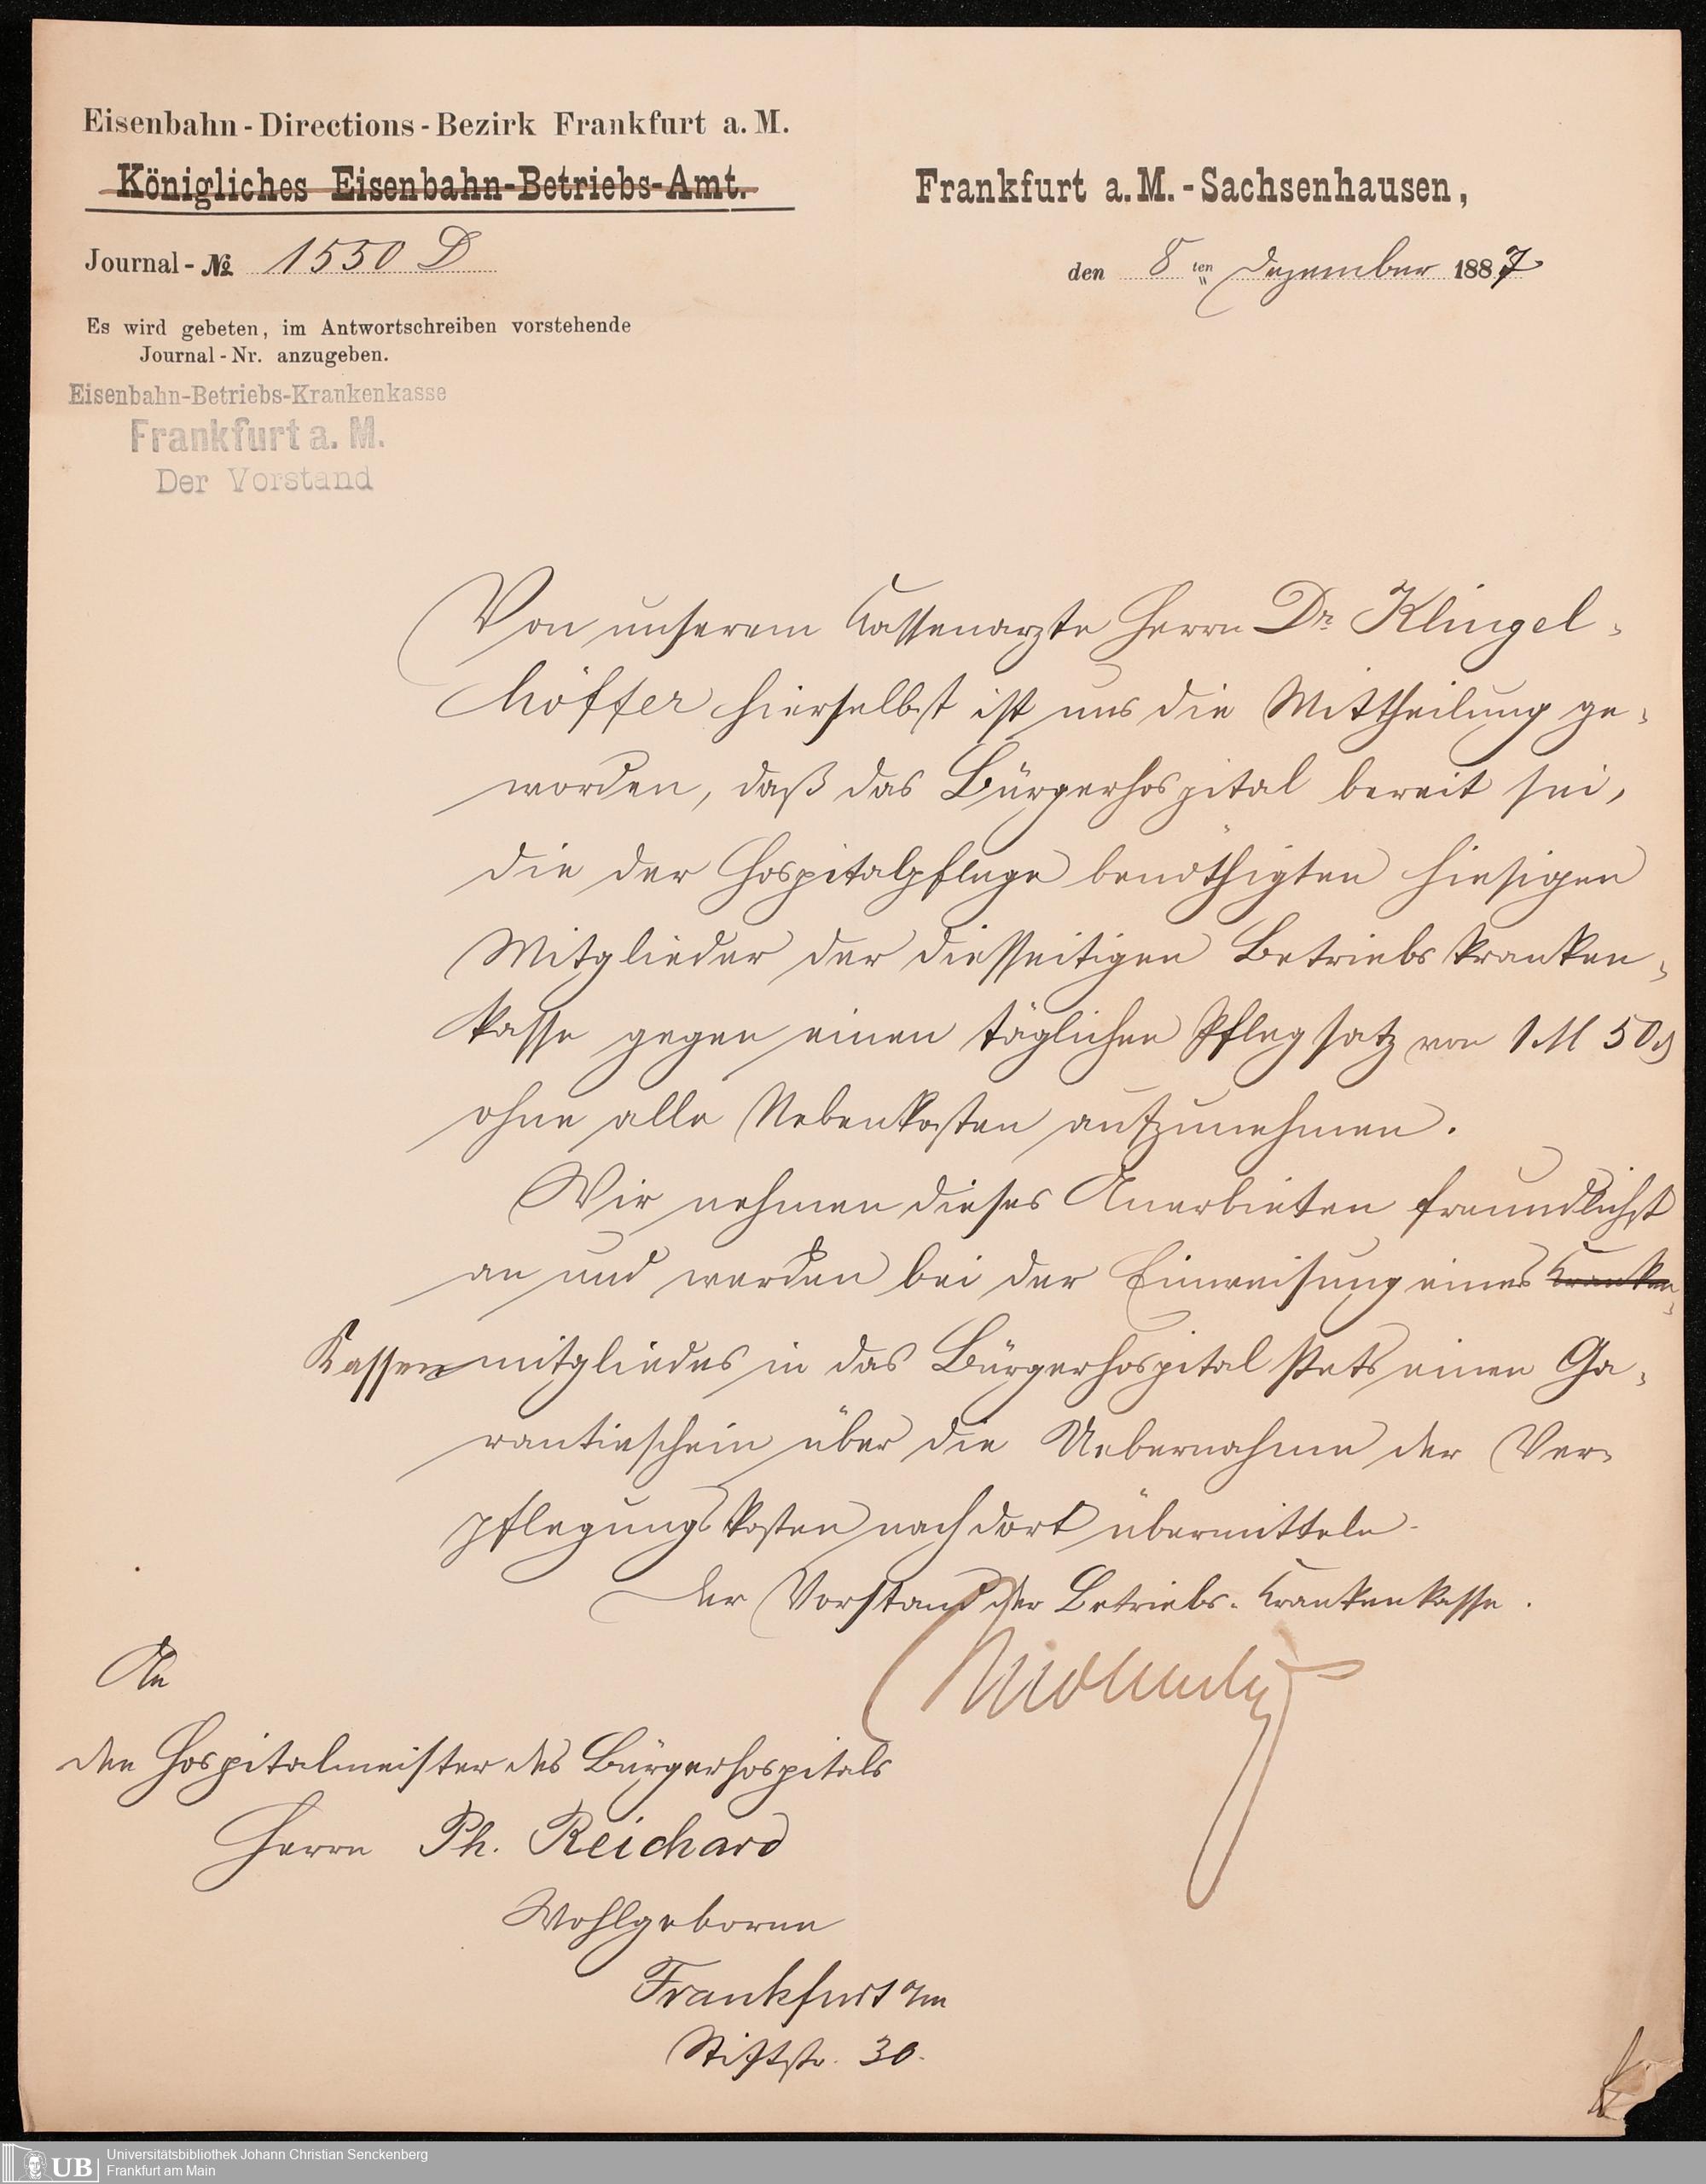 Eisenbahn-Directions-Bezirk Frankfurt a. M.
Königliches Eisenbahn-Betriebs-Amt.
Frankfurt a. M.-Sachsenhausen,
Journal-№ 1550 D
den 8ten Dezember 1887
Es wird gebeten, im Antwortschreiben vorstehende
Journal-Nr. anzugeben.
Eisenbahn-Betriebs-Krankenkasse
Frankfurt a. M.
Der Vorstand
Von unserem Cassenarzte Herrn Dr Klingel-
höffer hierselbst ist uns die Mittheilung ge-
worden, daß das Bürgerhospital bereit sei,
die der Hospitalpflege benöthigten hiesigen
Mitglieder der diesseitigen Betriebskranken-
kasse gegen einen täglichen Pflegsatz von 1 M 50 ₰
ohne alle Nebenkosten aufzunehmen.
Wir nehmen dieses Anerbieten freundlichst
an und werden bei der Einweisung eines Kranken-
Kassenmitgliedes in das Bürgerhospital stets einen Ga-
rantieschein über die Uebernahme der Ver-
pflegungskosten nach dort übermitteln.
Der Vorstand der Betriebs-Krankenkasse.
An
den Hospitalmeister des Bürgerhospitals
Herrn Ph. Reichard
Wohlgeboren
Frankfurt a/m
Stiftstr. 30.
UB
Universitätsbibliothek Johann Christian Senckenberg
Frankfurt am Main